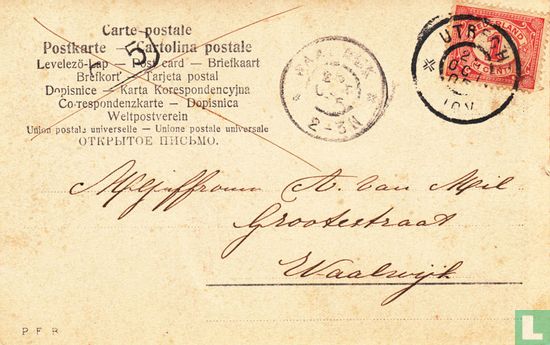 Carte postale
Postkarte — Cartolina postale
Levelezö-Lap — Post card — Briefkaart
Brefkort — Tarjeta postal
Dopisnice — Karta Korespondencyjna
Co·respondenzkarte — Dopisnica
Weltpostverein
Union postale universelle — Unione postale universale
ОТКРЫТОЕ ПИСЬМО.
5
NEDERLAND
1
CENT
UTRECHT
WAALWIJK
2-3N
Mejuffrouw A. van Mil
Grootestraat
Waalwijk
P. F. B.
catawiki